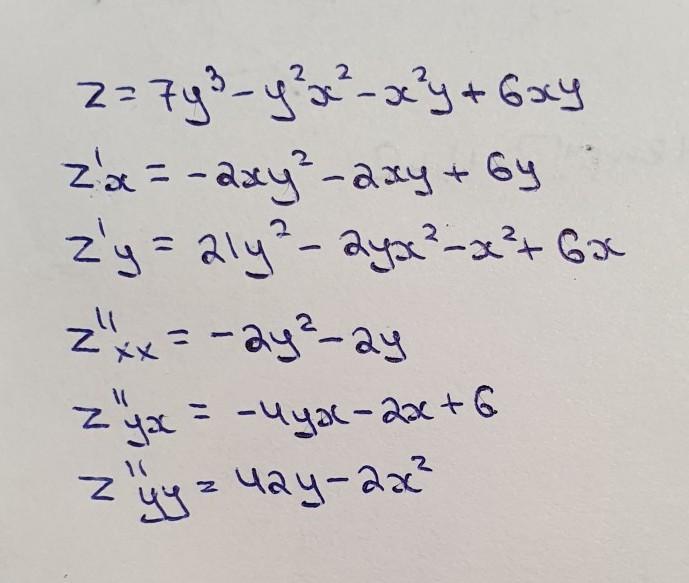 z = 7y³ - y²x² - x²y + 6xy
z'x = -2xy² - 2xy + 6y
z'y = 21y² - 2yx² - x² + 6x
z''xx = -2y² - 2y
z''yx = -4yx - 2x + 6
z''yy = 42y - 2x²